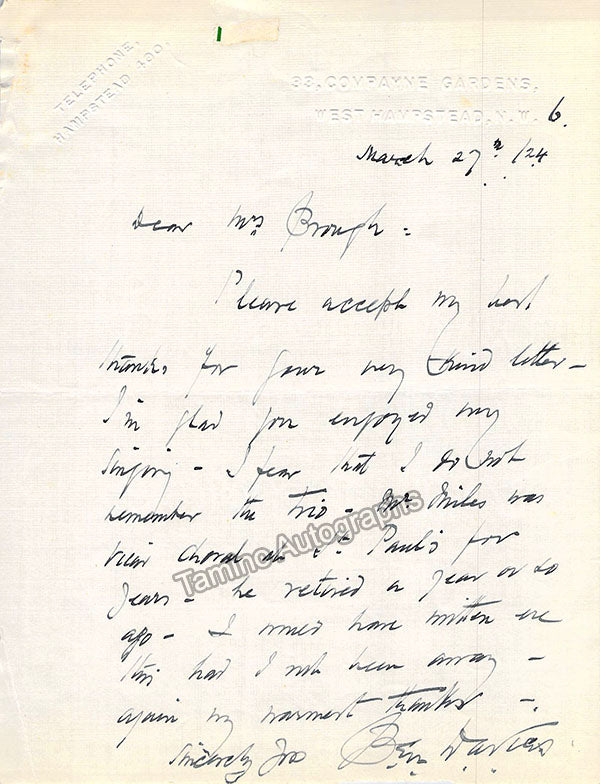 TELEPHONE,
HAMPSTEAD 400.
33, COMPAYNE GARDENS,
WEST HAMPSTEAD, N.W. 6.
March 27th /24
Dear Mrs Brough -
Please accept my best
thanks for your very kind letter -
I'm glad you enjoyed my
singing - I fear that I do not
remember the trio - Mr. Miles was
Vicar Choral at St. Paul's for
years - he retired a year or so
ago - I would have written ere
this had I not been away -
again my warmest thanks -
Sincerely yrs Ben Davies
Tamino Autographs